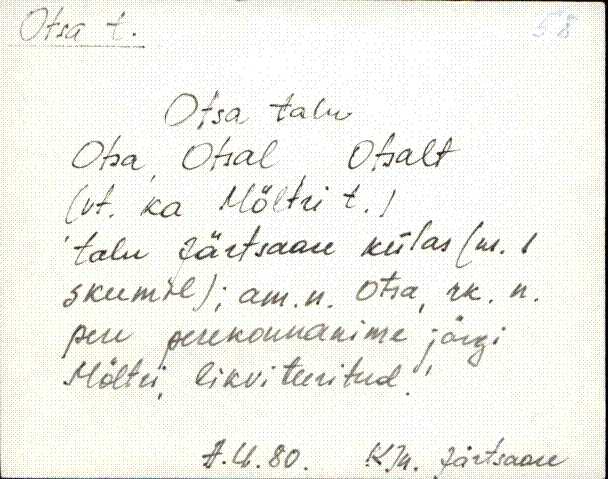 Otsa t.
58
Otsa talu
Otsa, Otsal, Otsalt
(vt. ka Möltri t.)
talu Järtsaare külas (m. 1
skeemil); am.n. Otsa, rk. n.
pere perekonnanime järgi
Möltri, likvideeritud.
80. KM. Järtsaare